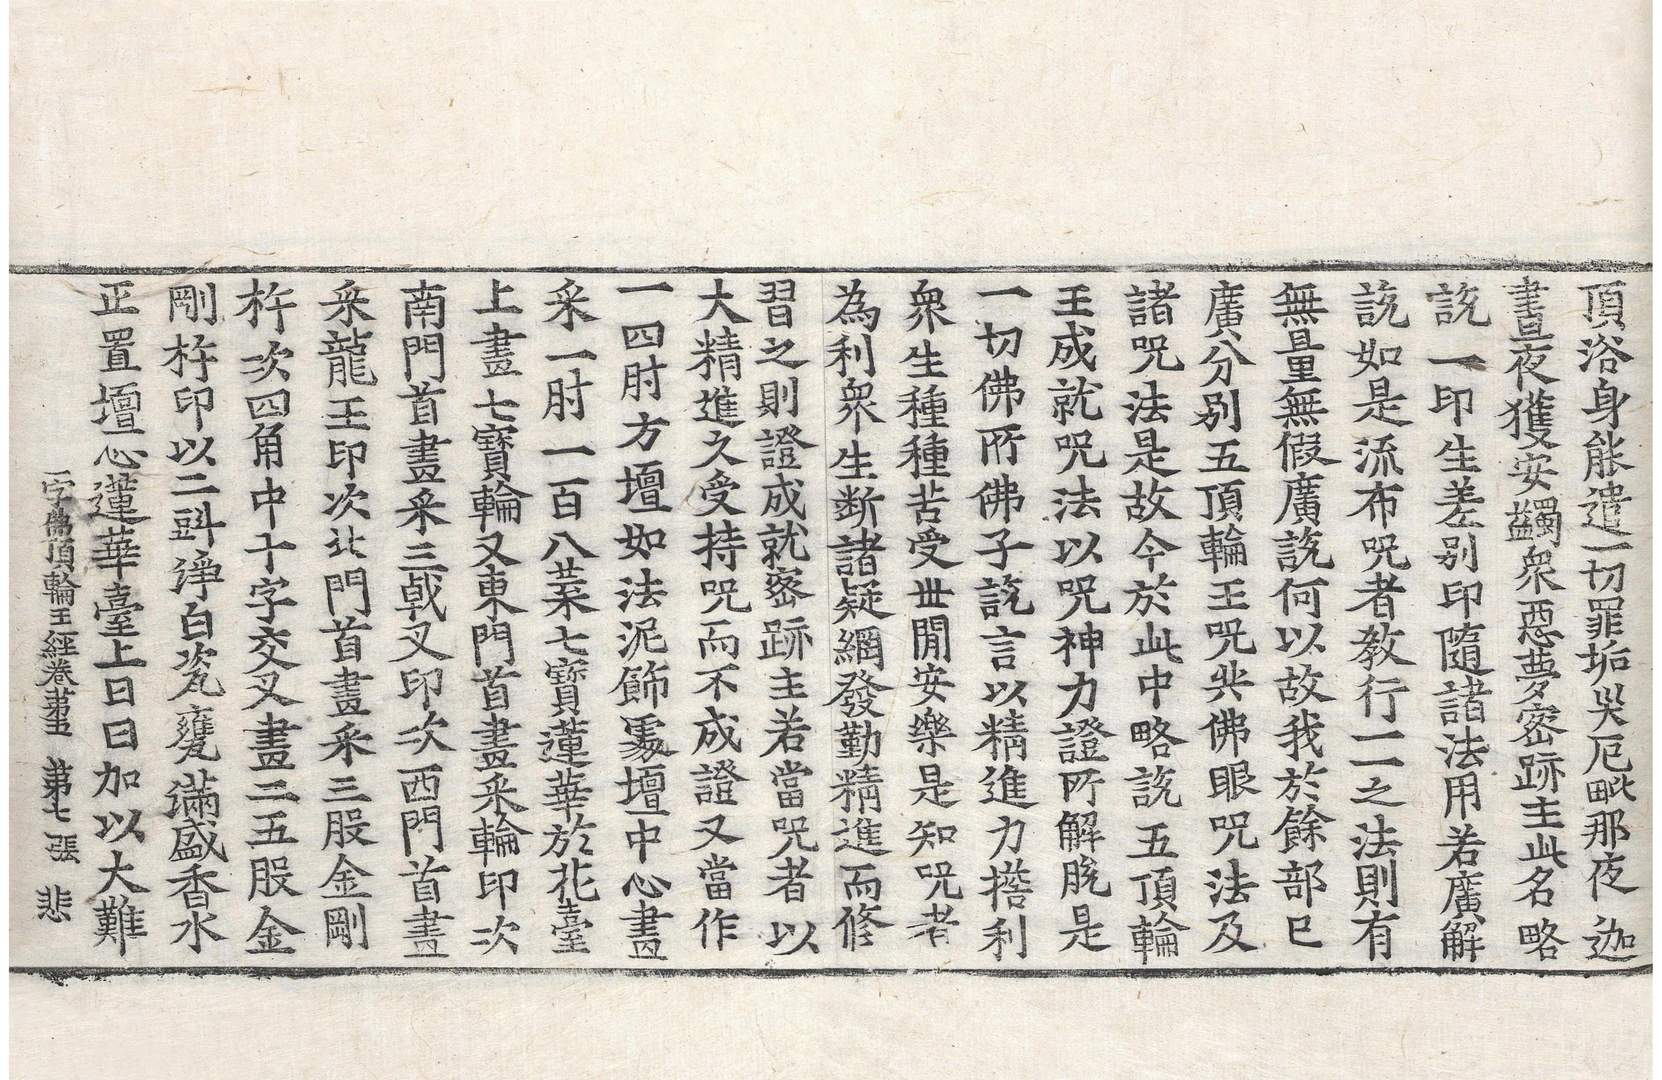 頂浴身能遣一切罪垢災厄毗那夜迦
晝夜獲安蠲衆惡夢密跡主此名略
說一印生差别印隨諸法用若廣解
說如是流布咒者教行一一之法則有
無量無假廣說何以故我於餘部已
廣分别五頂輪王咒此佛眼咒法及
諸咒法是故今於此中略說五頂輪
王成就咒法以咒神力證所解脫是
一切佛所佛子說言以精進力撘利
衆生種種苦受世間安樂是知咒者
為利衆生斷諸疑網發勤精進而修
習之則證成就密跡主若當咒者以
大精進久受持咒而不成證又當作
一四肘方壇如法泥飾豦壇中心畫
采一肘一百八葉七寶蓮華於花臺
上畫七寶輪又東門首畫采輪印次
南門首畫采三戟叉印次西門首畫
采龍王印次北門首畫采三股金剛
杵次四角中十字交叉畫二五股金
剛杵印以二㪷淨白瓷甕滿盛香水
正置壇心蓮華臺上日日加以大難
一字佛頂輪王經卷苐五 苐七張 悲